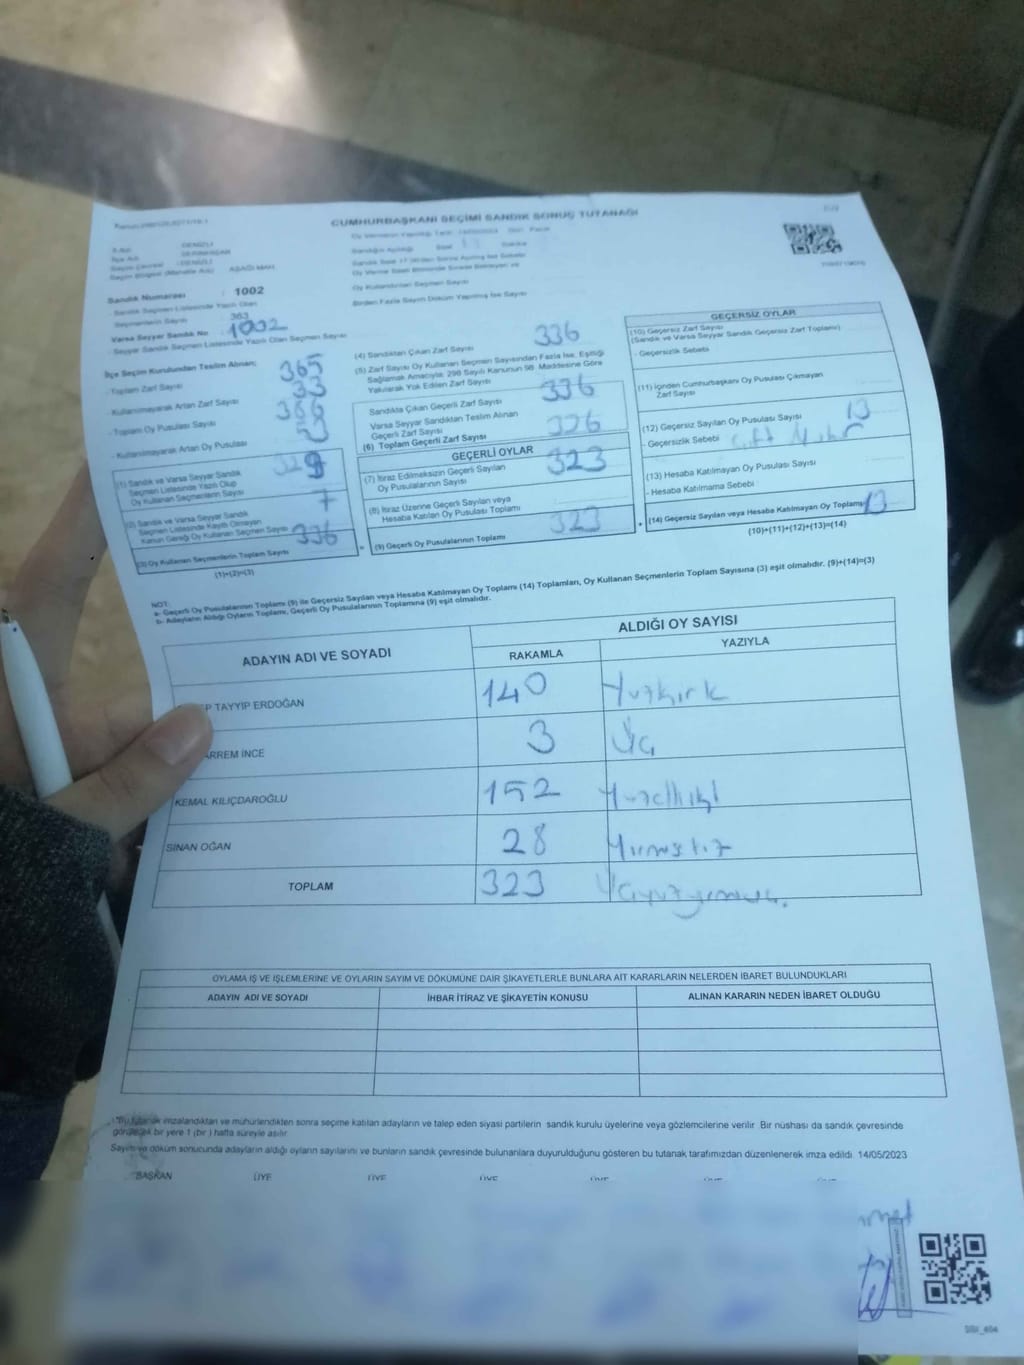 CUMHURBAŞKANI SEÇİMİ SANDIK SONUÇ TUTANAĞI
DENİZLİ
DENİZLİ
AŞAĞI MAH.
Sandık Numarası : 1002
Sandık Seçmen Listesinde Yazılı Olan
Seçmenlerin Sayısı 363
Varsa Seyyar Sandık No 1002
- Seyyar Sandık Seçmen Listesinde Yazılı Olan Seçmen Sayısı
İlçe Seçim Kurulundan Teslim Alınan;
- Toplam Zarf Sayısı 365
- Kullanılmayarak Artan Zarf Sayısı 33
- Toplam Oy Pusulası Sayısı
- Kullanılmayarak Artan Oy Pusulası
(1) Sandık ve Varsa Seyyar Sandık
Seçmen Listesinde Yazılı Olup
Oy Kullanan Seçmenlerin Sayısı 329
(2) Sandık ve Varsa Seyyar Sandık
Seçmen Listesinde Kayıtlı Olmayan
Kanun Gereği Oy Kullanan Seçmen Sayısı 7
(3) Oy Kullanan Seçmenlerin Toplam Sayısı 336
(1)+(2)=(3)
Oy Kullandırılan Seçmen Sayısı
Birden Fazla Sayım Döküm Yapılmış İse Sayısı
(4) Sandıktan Çıkan Zarf Sayısı 336
(5) Zarf Sayısı Oy Kullanan Seçmen Sayısından Fazla İse, Eşitliği
Sağlamak Amacıyla, 298 Sayılı Kanunun 98. Maddesine Göre
Yakılarak Yok Edilen Zarf Sayısı
Sandıkta Çıkan Geçerli Zarf Sayısı 336
Varsa Seyyar Sandıktan Teslim Alınan
Geçerli Zarf Sayısı
(6) Toplam Geçerli Zarf Sayısı 336
GEÇERLİ OYLAR
(7) İtiraz Edilmeksizin Geçerli Sayılan
Oy Pusulalarının Sayısı 323
(8) İtiraz Üzerine Geçerli Sayılan veya
Hesaba Katılan Oy Pusulası Toplamı
(9) Geçerli Oy Pusulalarının Toplamı 323
GEÇERSİZ OYLAR
(10) Geçersiz Zarf Sayısı
(Sandık ve Varsa Seyyar Sandık Geçersiz Zarf Toplamı)
- Geçersizlik Sebebi
(11) İçinden Cumhurbaşkanı Oy Pusulası Çıkmayan
Zarf Sayısı
(12) Geçersiz Sayılan Oy Pusulası Sayısı 13
- Geçersizlik Sebebi
(13) Hesaba Katılmayan Oy Pusulası Sayısı
- Hesaba Katılmama Sebebi
(14) Geçersiz Sayılan veya Hesaba Katılmayan Oy Toplamı 13
(10)+(11)+(12)+(13)=(14)
NOT:
a- Geçerli Oy Pusulalarının Toplamı (9) ile Geçersiz Sayılan veya Hesaba Katılmayan Oy Toplamı (14) Toplamları, Oy Kullanan Seçmenlerin Toplam Sayısına (3) eşit olmalıdır. (9)+(14)=(3)
b- Adayların Aldığı Oyların Toplamı, Geçerli Oy Pusulalarının Toplamına (9) eşit olmalıdır.
ADAYIN ADI VE SOYADI
ALDIĞI OY SAYISI
RAKAMLA YAZIYLA
TAYYİP ERDOĞAN 140 Yüzkırk
İNCE 3 Üç
KEMAL KILIÇDAROĞLU 152 Yüzelliiki
SİNAN OĞAN 28
TOPLAM 323
OYLAMA İŞ VE İŞLEMLERİNE VE OYLARIN SAYIM VE DÖKÜMÜNE DAİR ŞİKAYETLERLE BUNLARA AİT KARARLARIN NELERDEN İBARET BULUNDUKLARI
ADAYIN ADI VE SOYADI İHBAR İTİRAZ VE ŞİKAYETİN KONUSU ALINAN KARARIN NEDEN İBARET OLDUĞU
tutanak imzalandıktan ve mühürlendikten sonra seçime katılan adayların ve talep eden siyasi partilerin sandık kurulu üyelerine veya gözlemcilerine verilir. Bir nüshası da sandık çevresinde
görülecek bir yere 1 (bir) hafta süreyle asılır.
Sayım ve döküm sonucunda adayların aldığı oyların sayılarını ve bunların sandık çevresinde bulunanlara duyurulduğunu gösteren bu tutanak tarafımızdan düzenlenerek imza edildi. 14/05/2023
BAŞKAN ÜYE ÜYE ÜYE